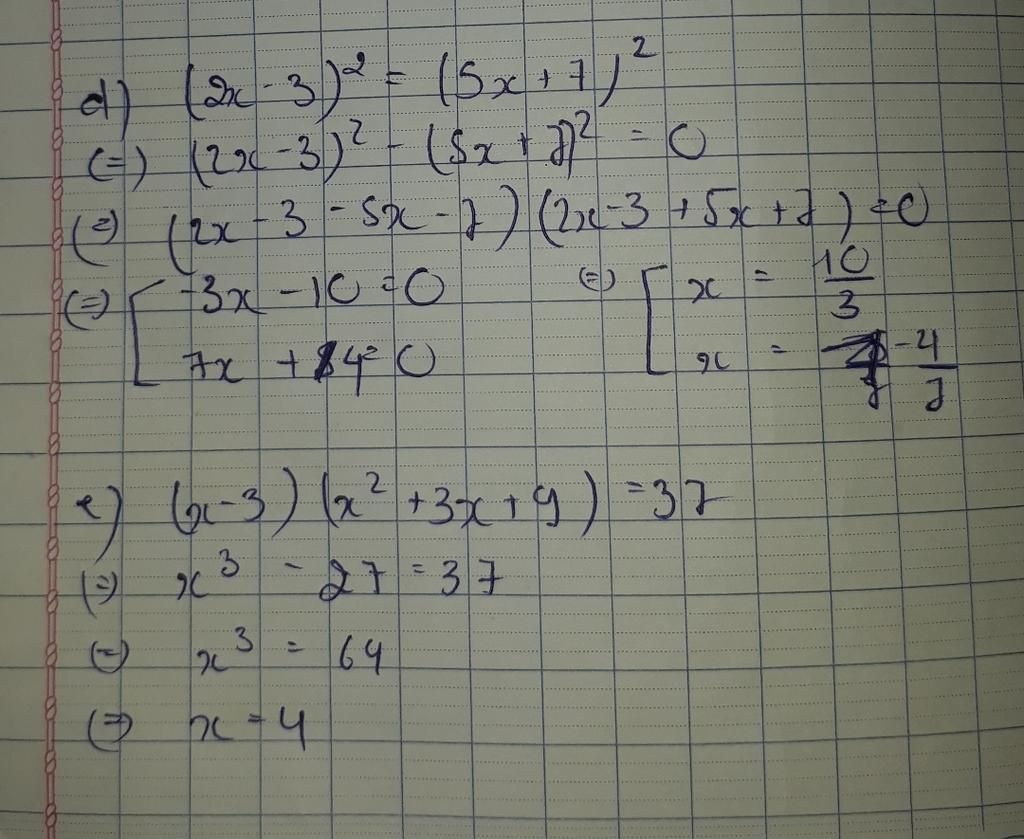 d) (2x - 3)² = (5x + 7)²
(=) (2x - 3)² - (5x + 7)² = 0
(=) (2x - 3 - 5x - 7) (2x - 3 + 5x + 7) = 0
(=) [ -3x - 10 = 0 (=) [ x = 10/3
7x + 4 = 0 x = -4/7
e) (x - 3) (x² + 3x + 9) = 37
(=) x³ - 27 = 37
(=) x³ = 64
(=) x = 4